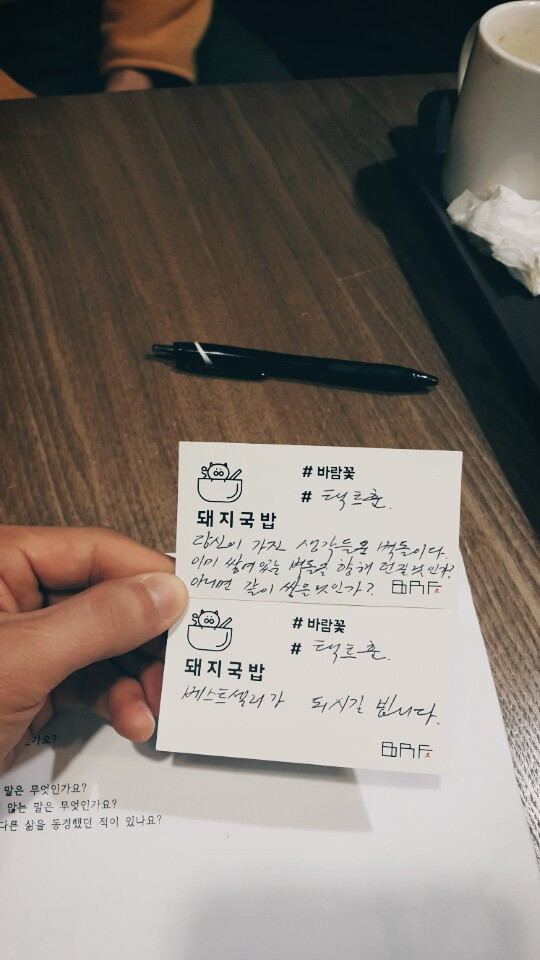 # 바람꽃
# 택트훈.
돼지국밥
당신이 가진 생각들은 벽돌이다.
이미 쌓여있는 벽돌을 향해 던질 것인가?
아니면 같이 쌓을 것인가?
BRF
# 바람꽃
# 택트훈.
돼지국밥
베스트셀러가 되시길 빕니다.
BRF
가요?
말은 무엇인가요?
않는 말은 무엇인가요?
다른 삶을 동경했던 적이 있나요?